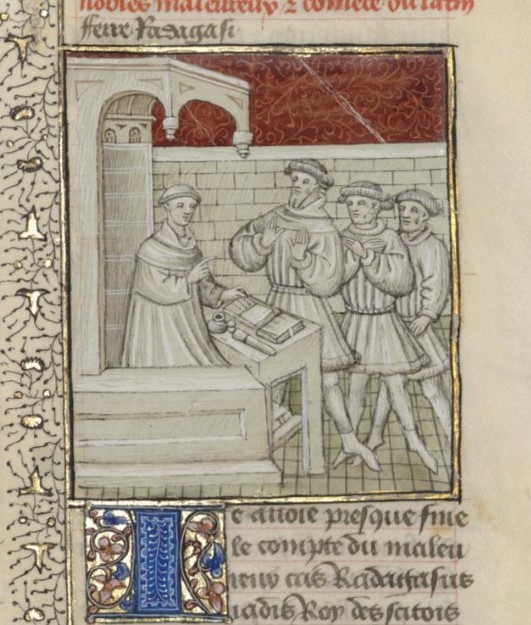 nobles maleureux & co
feire Radagasi
Ie avoie presque fine
le compte du maleu
reux cas Radathasus
iadis Roy des scitois